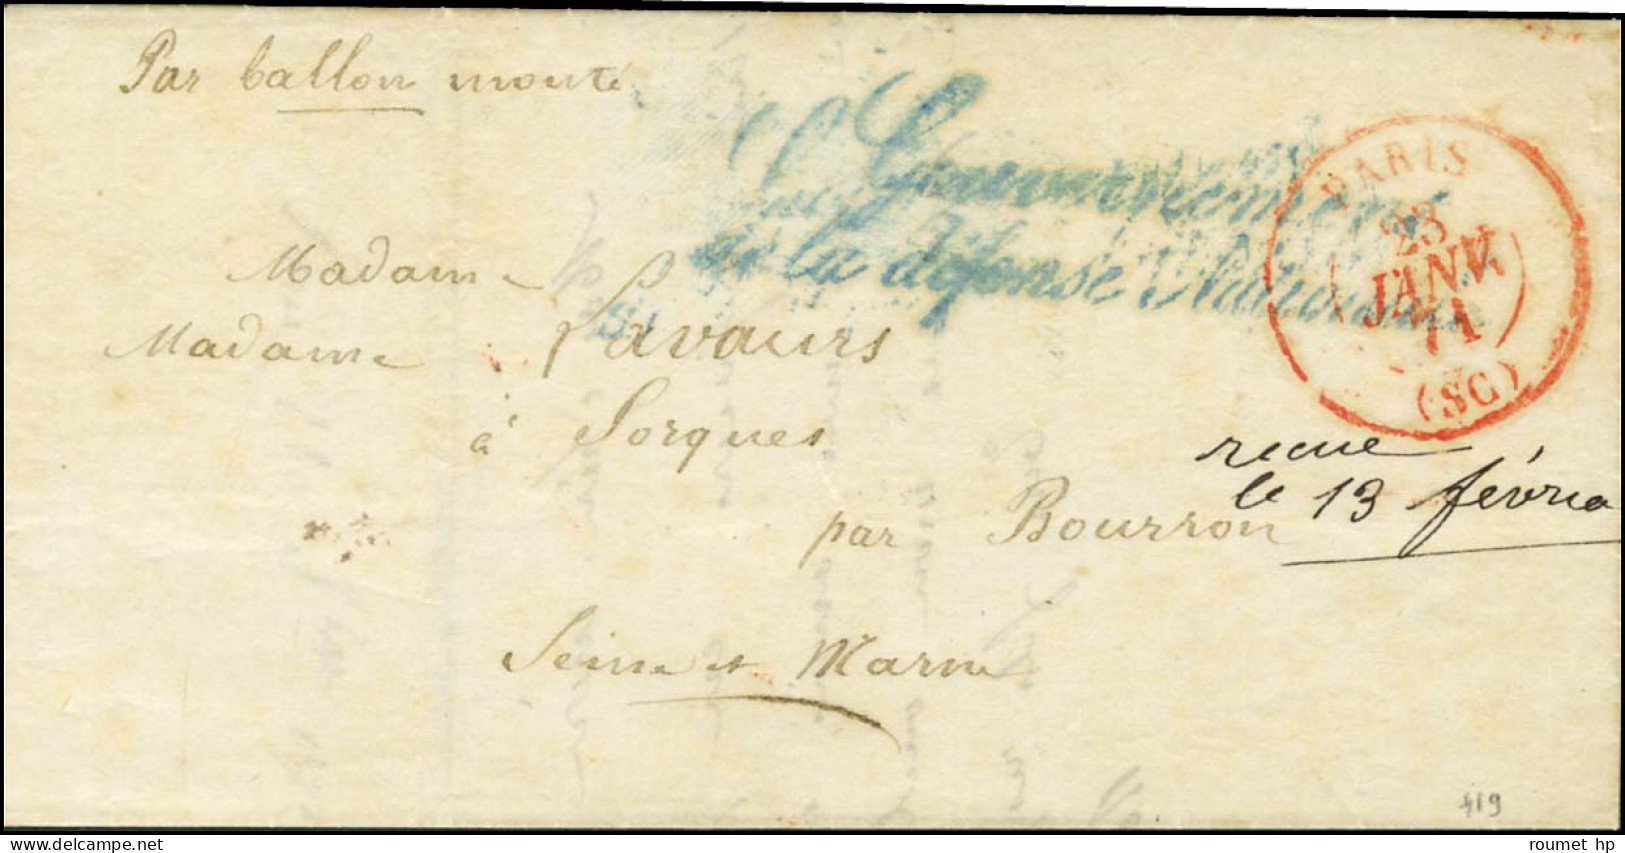 Par ballon monté
Gouvernement
de la défense Nationale
PARIS
23
JANV
71
(SC)
Madame
Madame Lavaurs
à Sorques
par Bourron
Seine et Marne
recue
le 13 février
419
www.delcampe.net
roumet hp